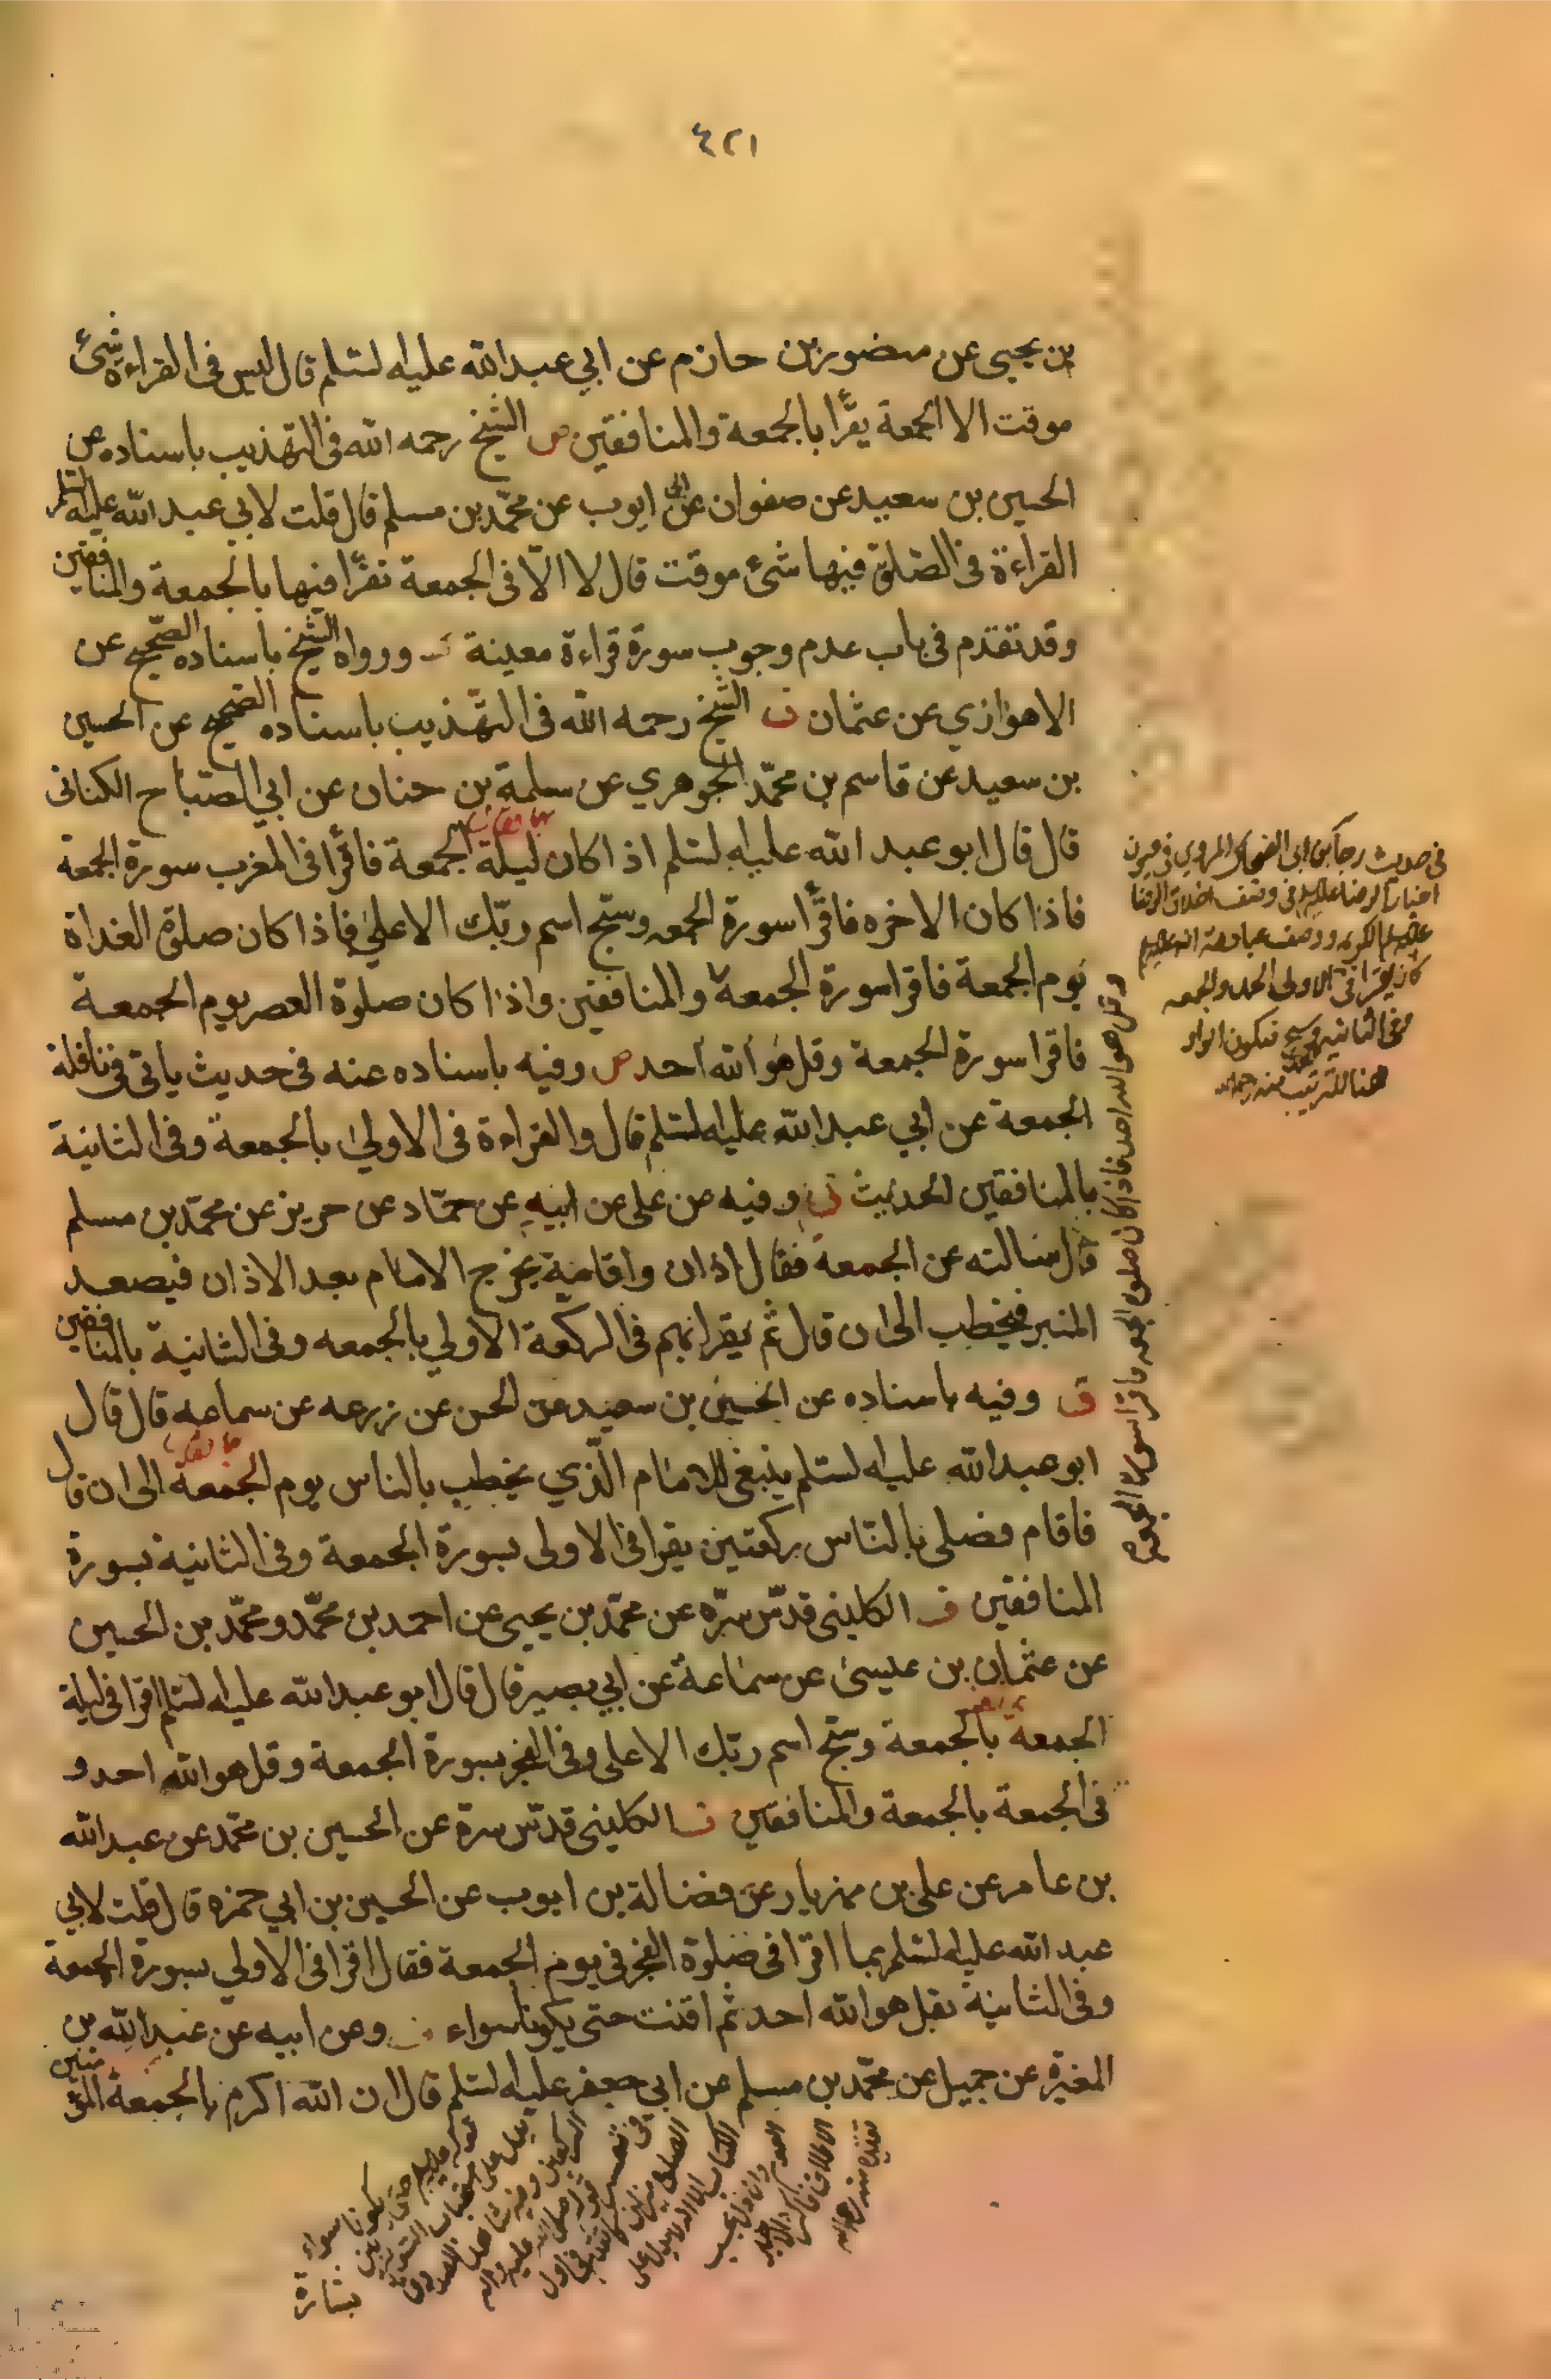 ٤٢١
بن يحيى عن منصور بن حازم عن ابي عبدالله عليه لسلم قال ليس فى القراءة شئ
موقت الا الجمعة يقرا بالجمعة والمنافقين ص الشيخ رحمه الله فى التهذيب باسناده عن
الحسين بن سعيد عن صفوان عن ابى ايوب عن محمد بن مسلم قال قلت لابي عبد الله عليه السلم
القراءة فى الصلوة فيها شئ موقت قال لا الا فى الجمعة تقرا فيها بالجمعة والمنافقين
وقد تقدم فى باب عدم وجوب سورة قراءة معينة ورواه الشيخ باسناده الصحيح عن
الاهوازي عن عثمان ف الشيخ رحمه الله فى التهذيب باسناده الصحيح عن الحسين
بن سعيد عن قاسم بن محمد الجوهري عن سلمة بن حنان عن ابي الصباح الكنانى
قال قال ابو عبد الله عليه لسلم اذا كان ليلة الجمعة فاقرا فى المغرب سورة الجمعة
فاذا كان الاخره فاقرا سورة الجمعه وسبح اسم ربك الاعلى فاذا كان صلوة الغداة
يوم الجمعة فاقرا سورة الجمعة والمنافقين واذا كان صلوة العصر يوم الجمعة
فاقرا سورة الجمعة وقل هو الله احد ص وفيه باسناده عنه فى حديث يأتى فى نافلة
الجمعة عن ابي عبدالله عليه لسلم قال والقراءة فى الاولى بالجمعة وفى الثانية
بالمنافقين الحديث وفيه عن على عن ابيه عن حماد عن حريز عن محمد بن مسلم
قال سالته عن الجمعة فقال اذان واقامة يخرج الامام بعد الاذان فيصعد
المنبر فيخطب الى ان قال ثم يقرا بهم فى الركعة الاولى بالجمعه وفى الثانية بالمنافقين
ق وفيه باسناده عن الحسين بن سعيد عن الحسن عن زرعه عن سماعه قال قال
ابو عبدالله عليه لسلم ينبغى للامام الذي يخطب بالناس يوم الجمعة الى ان قال
فاقام فصلى بالناس ركعتين يقرا فى الاولى بسورة الجمعة وفى الثانية بسورة
المنافقين الكلينى قدس سره عن محمد بن يحيى عن احمد بن محمد ومحمد بن الحسين
عن عثمان بن عيسى عن سماعة عن ابي بصير قال قال ابو عبدالله عليه لسلم اقرا فى ليلة
الجمعة بالجمعة وسبح اسم ربك الاعلى وفى الفجر بسورة الجمعة وقل هو الله احد و
فى الجمعة بالجمعة والمنافقين الكلينى قدس سره عن الحسين بن محمد عن عبدالله
بن عامر عن على بن مهزيار عن فضالة بن ايوب عن الحسين بن ابي حمزه قال قلت لابي
عبد الله عليه لسلم بما اقرا فى صلوة الفجر فى يوم الجمعة فقال اقرا فى الاولى بسورة الجمعة
وفى الثانية بقل هو الله احد ثم اقنت حتى يكونا سواء وعن ابيه عن عبدالله بن
المغيرة عن جميل عن محمد بن مسلم عن ابى جعفر عليه لسلم قال ان الله اكرم بالجمعة المؤمنين
فى حديث رجاء بن ابى الضحاك المروي فى عيون
اخبار الرضا عليه فى وصف اخلاق الرضا
عليه الكريم ووصف عبادته
كان يقرا فى الاولى الحمد والجمعه
وفى الثانيه وسبح فتكون الواو
هنا للترتيب منه رحمه الله
وقل هو الله احد فاذا كان صلوة الجمعه فاقرا سورة الجمعه
قوله عليه حتى يكونا سواء
بشارة